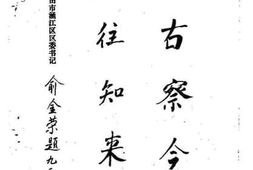 古察今
往知来
市涵江区区委书记
俞金荣题九